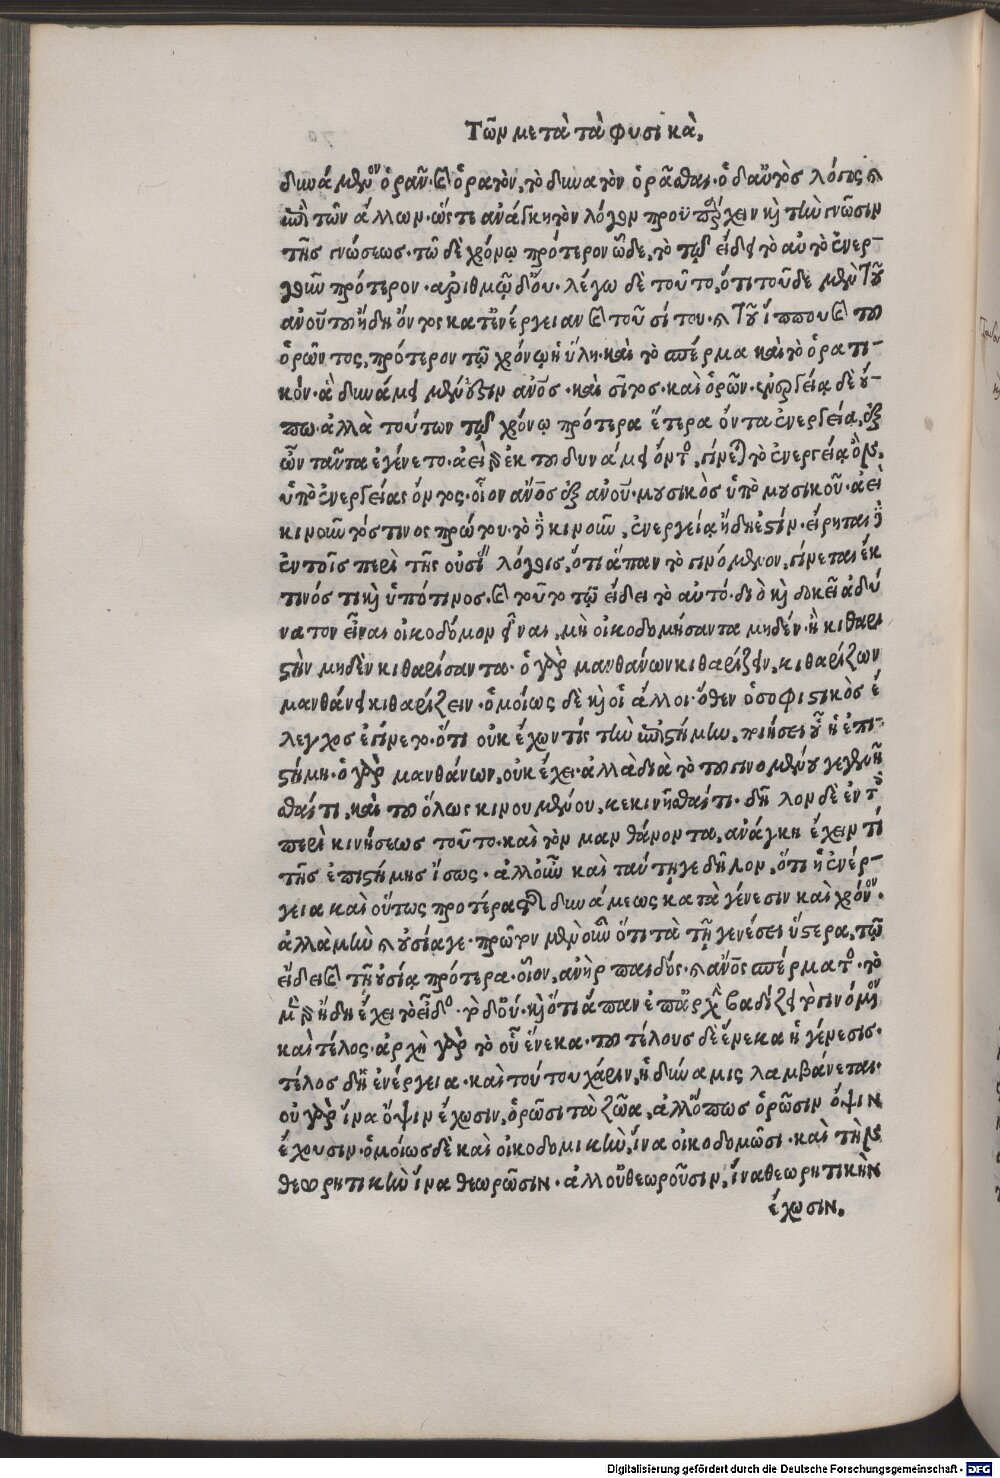 Τῶν μετὰ τὰ φυσικὰ.
δυνάμενον ὁρᾶν. καὶ ὁρατὸν, τὸ δυνατὸν ὁρᾶσθαι. ὁ δ αὐτὸς λόγος καὶ
ἐπὶ τῶν ἄλλων. ὥστε ἀνάγκη τὸν λόγον προϋπάρχειν καὶ τὴν γνῶσιν
τῆς γνώσεως. τῶ δὲ χρόνῳ πρότερον ὧδε, τὸ τῷ εἴδει τὸ αὐτὸ ἐνερ-
γοῦν πρότερον. ἀριθμῷ δ οὔ. λέγω δὲ τοῦτο, ὅτι τοῦδε μὲν τοῦ
ἀνοῦ τοῦ ἤδη ὄντος κατ ἐνέργειαν καὶ τοῦ σίτου. καὶ τοῦ ἵππου καὶ τοῦ
ὁρῶντος, πρότερον τῷ χρόνῳ ἡ ὕλη. καὶ τὸ σπέρμα καὶ τὸ ὁρατι-
κόν. ἃ δυνάμει μέν ἐστιν ἄνος. καὶ σῖτος. καὶ ὁρῶν. ἐνεργείᾳ δὲ οὔ-
πω. ἀλλὰ τούτων τῷ χρόνῳ πρότερα ἕτερα ὄντα ἐνεργείᾳ, ἐξ
ὧν ταῦτα ἐγένετο. ἀεὶ γὰρ ἐκ τοῦ δυνάμει ὄντος, γίνεται τὸ ἐνεργείᾳ ὂν,
ὑπὸ ἐνεργείας ὄντος. οἷον ἄνος ἐξ ἀνοῦ. μουσικὸς ὑπὸ μουσικοῦ. ἀεὶ
κινοῦντός τινος πρώτου. τὸ δὲ κινοῦν, ἐνεργείᾳ ἤδη ἐστίν. εἴρηται δὲ
ἐν τοῖς περὶ τῆς οὐσίας λόγοις, ὅτι ἅπαν τὸ γινόμενον, γίνεται ἔκ
τινός τι καὶ ὑπό τινος. καὶ τοῦτο τῷ εἴδει τὸ αὐτό. διὸ καὶ δοκεῖ ἀδύ
νατον εἶναι οἰκοδόμον εἶναι, μὴ οἰκοδομήσαντα μηδέν. ἢ κιθαρι
στὴν μηδὲν κιθαρίσαντα. ὁ γὰρ μανθάνων κιθαρίζειν, κιθαρίζων
μανθάνει κιθαρίζειν. ὁμοίως δὲ καὶ οἱ ἄλλοι. ὅθεν ὁ σοφιστικὸς ἔ
λεγχος ἐγίνετο. ὅτι οὐκ ἔχων τίς τὴν ἐπιστήμην, ποιήσει οὗ ἡ ἐπι-
στήμη. ὁ γὰρ μανθάνων, οὐκ ἔχει. ἀλλὰ διὰ τὸ τοῦ γινομένου γεγενῆ
σθαί τι, καὶ τοῦ ὅλως κινουμένου, κεκινῆσθαί τι. δῆλον δὲ ἐν τοῖς
περὶ κινήσεως τοῦτο. καὶ τὸν μανθάνοντα, ἀνάγκη ἔχειν τί
τῆς ἐπιστήμης ἴσως. ἀλλ οὖν καὶ ταύτῃ γε δῆλον, ὅτι ἡ ἐνέρ-
γεια καὶ οὕτως προτέρα τῆς δυνάμεως κατὰ γένεσιν καὶ χρόνον.
ἀλλὰ μὴν καὶ οὐσίᾳ γε. πρῶτον μὲν οὖν ὅτι τὰ τῇ γενέσει ὕστερα, τῷ
εἴδει καὶ τῇ οὐσίᾳ πρότερα. οἷον, ἀνὴρ παιδός. καὶ ἄνος σπέρματος. τὸ
μὲν γὰρ ἤδη ἔχει τὸ εἶδος. τὸ δ οὔ. καὶ ὅτι ἅπαν ἐπ ἀρχὴν βαδίζει τὸ γινόμενον
καὶ τέλος. ἀρχὴ γὰρ τὸ οὗ ἕνεκα. τοῦ τέλους δὲ ἕνεκα ἡ γένεσις.
τέλος δὴ ἐνέργεια. καὶ τούτου χάριν, ἡ δύναμις λαμβάνεται.
οὐ γὰρ ἵνα ὄψιν ἔχωσιν, ὁρῶσι τὰ ζῶα, ἀλλ ὅπως ὁρῶσιν ὄψιν
ἔχουσιν. ὁμοίως δὲ καὶ οἰκοδομικὴν, ἵνα οἰκοδομῶσι. καὶ τὴν
θεωρητικὴν ἵνα θεωρῶσιν. ἀλλ οὐ θεωροῦσιν, ἵνα θεωρητικὴν
ἔχωσιν.
Digitalisierung gefördert durch die Deutsche Forschungsgemeinschaft - DFG